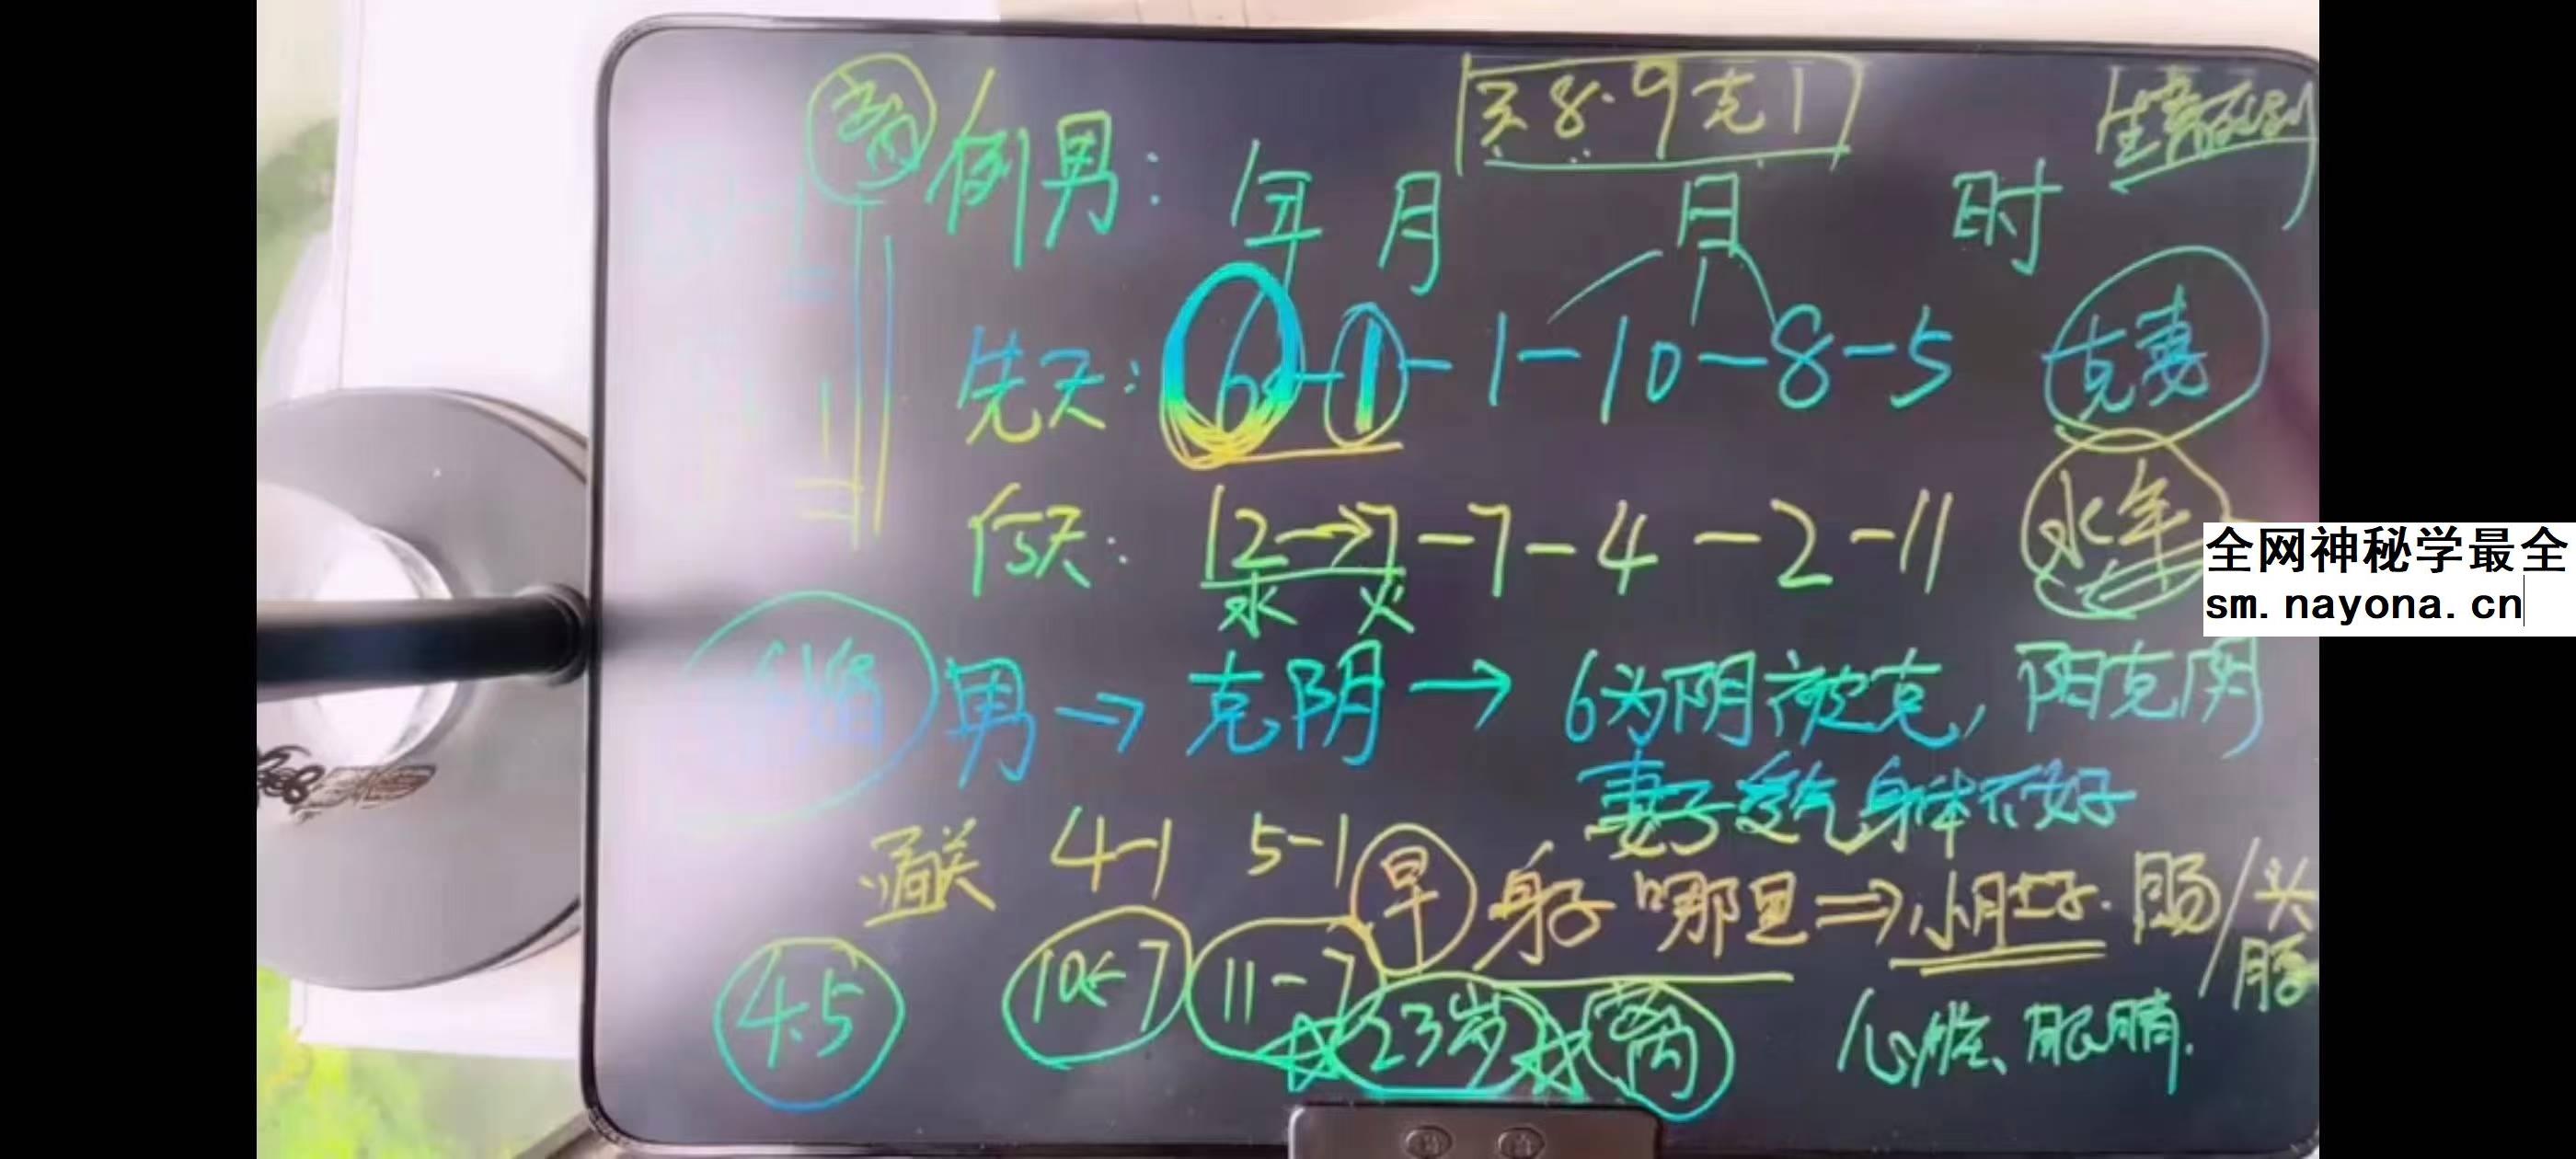 买8.9克1
例男: 年 月 日 时
先天: 6-1-1-10-8-5
克妻
后天: 12→7-7-4-2-11
水 火
水年
全网神秘学最全
sm.nayona.cn
男→克阴→6为阴被克,阳克阴
妻子受气身体不好
通关 4-1 5-1
早 身子 哪里⇒小月士子.肠/头
脖
4.5 10←7 11-7 23岁
心脏、眼睛.